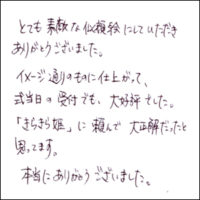 とても素敵な似顔絵にしていただき
ありがとうございました。
イメージ通りのものに仕上がって、
式当日の受付でも、大好評でした。
「きらきら姫」に頼んで大正解だったと
思ってます。
本当にありがとうございました。